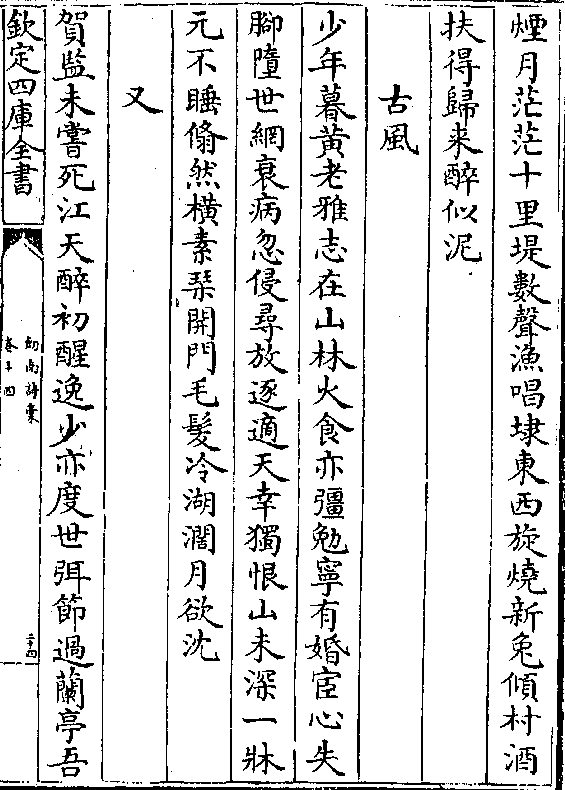 煙月茫茫十里堤數聲漁唱埭東西旋燒新兔傾村酒
扶得歸来醉似泥
古風
少年暮黄老雅志在山林火食亦彊勉寧有婚宦心失
腳墮世網衰病忽侵尋放逐適天幸獨恨山未深一牀
元不睡翛然橫素琴開門毛髮冷湖濶月欲沈
又
賀監未嘗死江天醉初醒逸少亦度世弭節過蘭亭吾
欽定四庫全書
劍南詩稾
卷十四
二十四